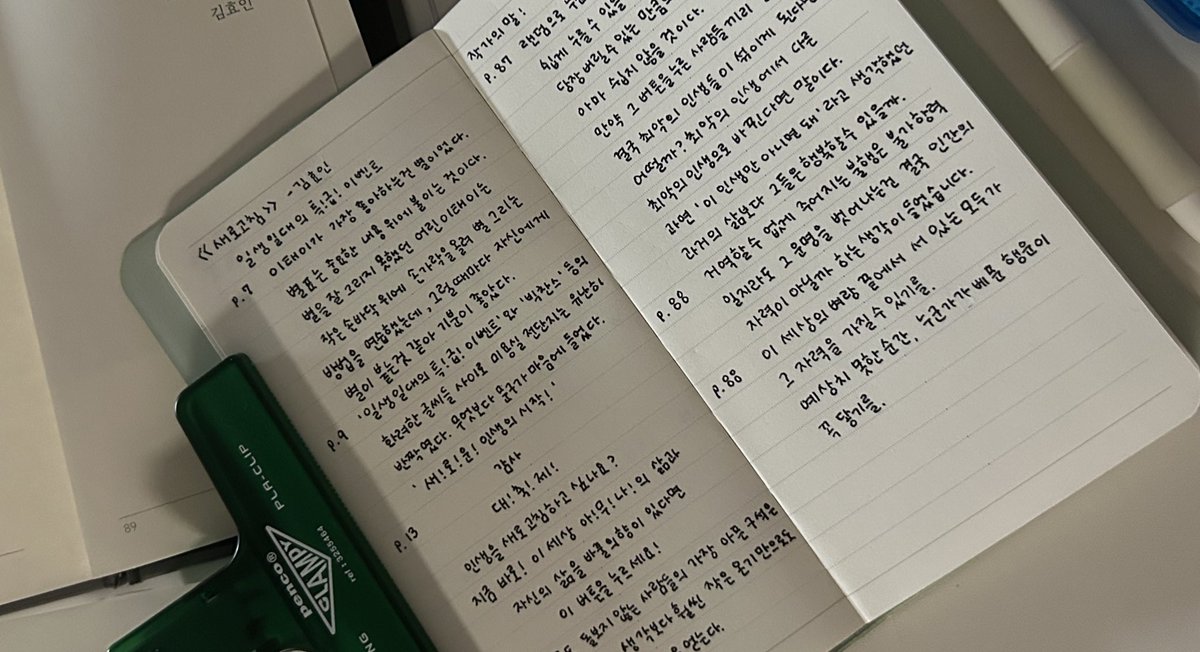 김효인
89
《새로고침》 -김효인
일생일대의 특!급! 이벤트
p.7 이태이가 가장 좋아하는건 별이었다.
별표는 중요한 내용 위에 붙이는 것이다.
별을 잘 그리지 못했던 어린 이태이는
작은 손바닥 위에 손가락을 올려 별 그리는
방법을 연습했는데, 그럴때마다 자신에게
별이 붙는것 같아 기분이 좋았다.
p.9 '일생일대의 특!급! 이벤트'와 '박찬스' 등의
화려한 글씨들 사이로 미용실 전단지는 유난히
반짝였다. 무엇보다 문구가 마음에 들었다.
'새!로!운! 인생의 시작!'
감사
p.13 대!축!제!
인생을 새로고침하고 싶나요?
지금 바로! 이 세상 아!무!나!의 삶과
자신의 삶을 바꿀의향이 있다면
이 버튼을 누르세요!
돌보지 않는 사람들의 가장 아픈 구석은
생각보다 훨씬 작은 온기만으로도
얻는다.
작가의 말!
p.87 랜덤으로
쉽게 누를 수 있을
당장 버릴수 있는 만큼
아마 쉽지 않을 것이다.
만약 그 버튼을 누른 사람들끼리
결국 최악의 인생들이 섞이게 된다면
어떨까? 최악의 인생에서 다른
최악의 인생으로 바뀐다면 말이다.
과연 '이 인생만 아니면 돼'라고 생각했던
과거의 삶보다 그들은 행복할수 있을까.
p.88 거역할수 없게 주어지는 불행은 불가항력
일지라도 그 운명을 벗어나는건 결국 인간의
자력이 아닐까 하는 생각이 들었습니다.
p.88 이 세상의 벼랑 끝에서 서 있는 모두가
그 자력을 가질 수 있기를.
예상치 못한 순간, 누군가가 베푼 행운이
꼭 닿기를.
PLA-CLIP
penco®
CLAMPY
ref:3255464
NG